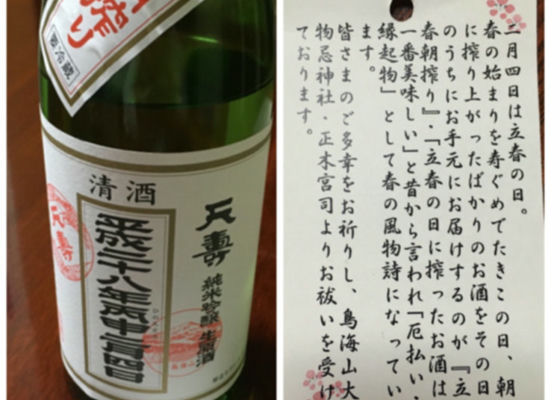 搾り
要冷蔵
清酒
天壽
純米吟醸 生原酒
平成二十八年丙申二月四日
天壽
二月四日は立春の日。
春の始まりを寿ぐめでたきこの日、朝
に搾り上がったばかりのお酒をその日
のうちにお手元にお届けするのが『立
春朝搾り』・「立春の日に搾ったお酒は
一番美味しい」と昔から言われ「厄払い、
縁起物」として春の風物詩になってい
ます。
皆さまのご多幸をお祈りし、鳥海山大
物忌神社・正木宮司よりお祓いを受け
ております。